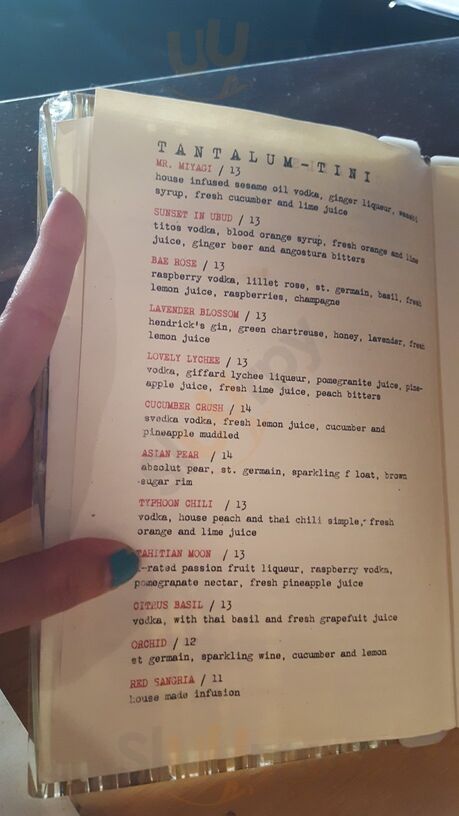 TANTALUM-TINI
MR. MIYAGI / 13
house infused sesame oil vodka, ginger liqueur, wasabi
syrup, fresh cucumber and lime juice
SUNSET IN UBUD / 13
titos vodka, blood orange syrup, fresh orange and lime
juice, ginger beer and angostura bitters
BAE ROSE / 13
raspberry vodka, lillet rose, st. germain, basil, fresh
lemon juice, raspberries, champagne
LAVENDER BLOSSOM / 13
hendrick's gin, green chartreuse, honey, lavender, fresh
lemon juice
LOVELY LYCHEE / 13
vodka, giffard lychee liqueur, pomegranite juice, pine-
apple juice, fresh lime juice, peach bitters
CUCUMBER CRUSH / 14
svedka vodka, fresh lemon juice, cucumber and
pineapple muddled
ASIAN PEAR / 14
absolut pear, st. germain, sparkling f loat, brown
sugar rim
TYPHOON CHILI / 13
vodka, house peach and thai chili simple, fresh
orange and lime juice
TAHITIAN MOON / 13
-rated passion fruit liqueur, raspberry vodka,
pomegranate nectar, fresh pineapple juice
CITRUS BASIL / 13
vodka, with thai basil and fresh grapefuit juice
ORCHID / 12
st germain, sparkling wine, cucumber and lemon
RED SANGRIA / 11
house made infusion